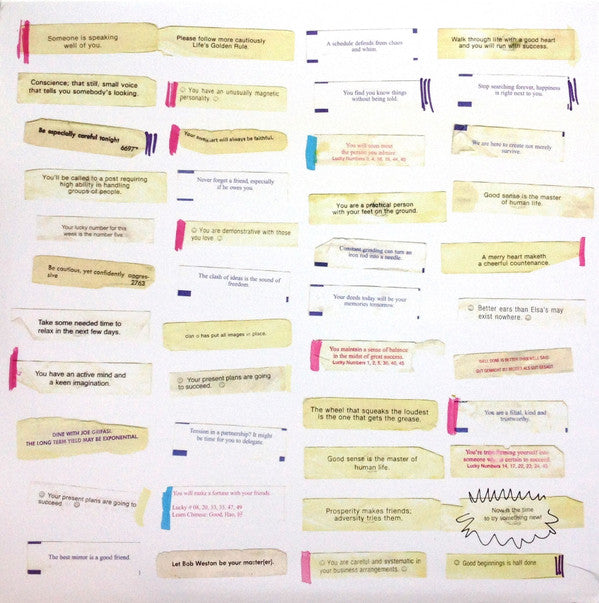 Someone is speaking
well of you.
Conscience; that still, small voice
that tells you somebody's looking.
Be especially careful tonight
6697
You'll be called to a post requiring
high ability in handling
groups of people.
Your lucky number for this
week is the number five.
Be cautious, yet confidently aggres-
sive
2763
Take some needed time to
relax in the next few days.
You have an active mind and
a keen imagination.
DINE WITH JOE GRIFASI.
THE LONG TERM YIELD MAY BE EXPONENTIAL.
☺ Your present plans are going to
succeed ☺
The best mirror is a good friend.
Please follow more cautiously
Life's Golden Rule.
☺ You have an unusually magnetic
personality ☺
Your will always be faithful.
Never forget a friend, especially
if he owes you.
☺ You are demonstrative with those
you love ☺
The clash of ideas is the sound of
freedom.
has put all images in place.
☺ Your present plans are going
to succeed. ☺
Tension in a partnership? It might
be time for you to delegate.
You will make a fortune with your friends
Lucky # 08, 20, 33, 35, 47, 49
Learn Chinese: Good, Hao,
A schedule defends from chaos
and whim.
You find you know things
without being told.
You will soon meet
the person you admire
Lucky Numbers 4, 18, 19, 44, 45
You are a practical person
with your feet on the ground.
Constant grinding can turn an
iron rod into a needle.
Your deeds today will be your
memories tomorrow.
You maintain a sense of balance
in the midst of great success.
Lucky Numbers 1, 2, 5, 36, 40, 45
The wheel that squeaks the loudest
is the one that gets the grease.
Good sense is the master of
human life.
Prosperity makes friends;
adversity tries them.
☺ You are careful and systematic in
your business arrangements. ☺
Walk through life with a good heart
and you will run with success.
Stop searching forever, happiness
is right next to you.
We are here to create not merely
survive.
Good sense is the master
of human life.
A merry heart maketh
a cheerful countenance.
☺ Better ears than Elsa's may
exist nowhere. ☺
WELL DONE IS BETTER THAN WELL SAID
You are a filial, kind and
trustworthy.
You're transforming yourself into
someone who is certain to succeed.
Lucky Numbers 14, 17, 22, 23, 24, 43
Now is the time
to try something new!
☺ Good beginnings is half done.
Let Bob Weston be your master(er).